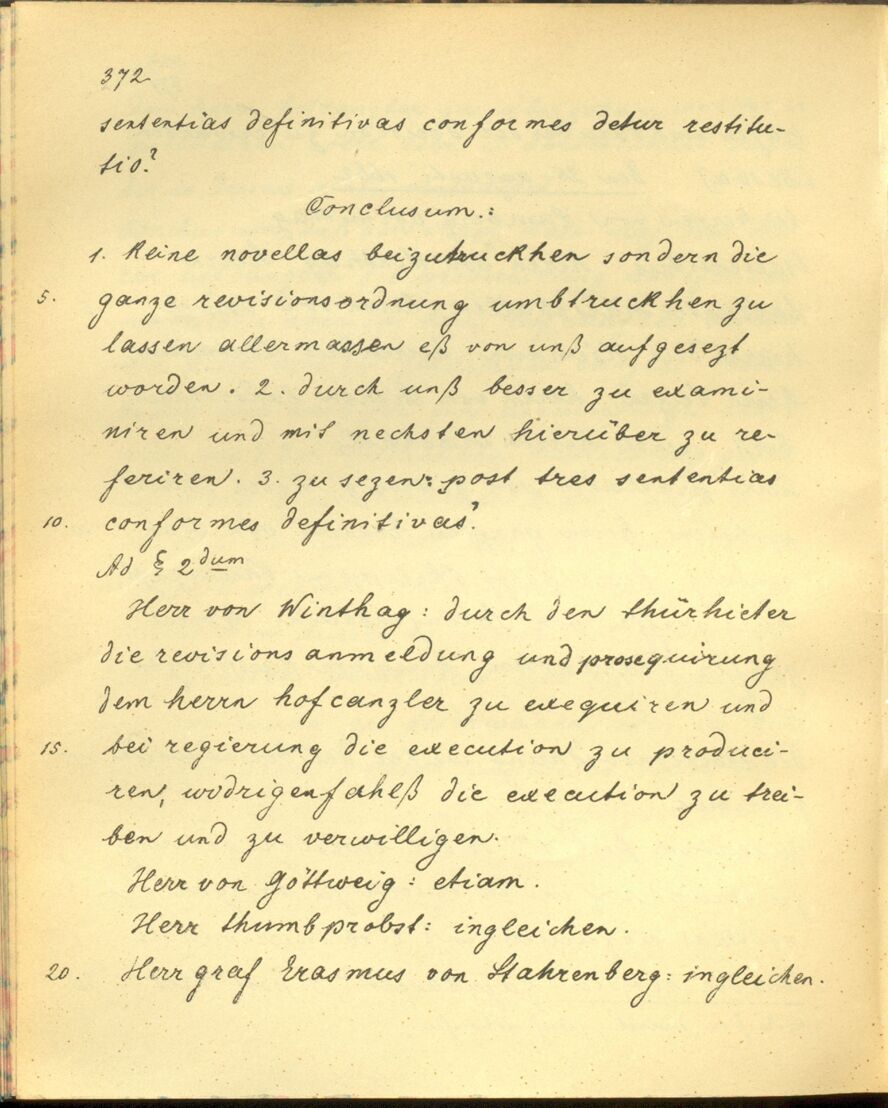 372
sententias definitivas conformes detur restitu-
tio?
Conclusum.:
1. Keine novellas beizutruckhen sondern die
5. ganze revisionsordnung umbtruckhen zu
lassen allermassen eß von unß aufgesezt
worden. 2. durch unß besser zu exami-
niren und mit nechsten hierüber zu re-
feriren. 3. zu sezen: post tres sententias
10. conformes definitivas?
Ad § 2dum
Herr von Winthag: durch den thürhieter
die revisions anmeldung und prosequirung
dem herrn hofcanzler zu exequiren und
15. bei regierung die execution zu produci-
ren, widrigenfahlß die execution zu trei-
ben und zu verwilligen.
Herr von Göttweig: etiam.
Herr thumbprobst: ingleichen.
20. Herr graf Erasmus von Stahrenberg: ingleichen.